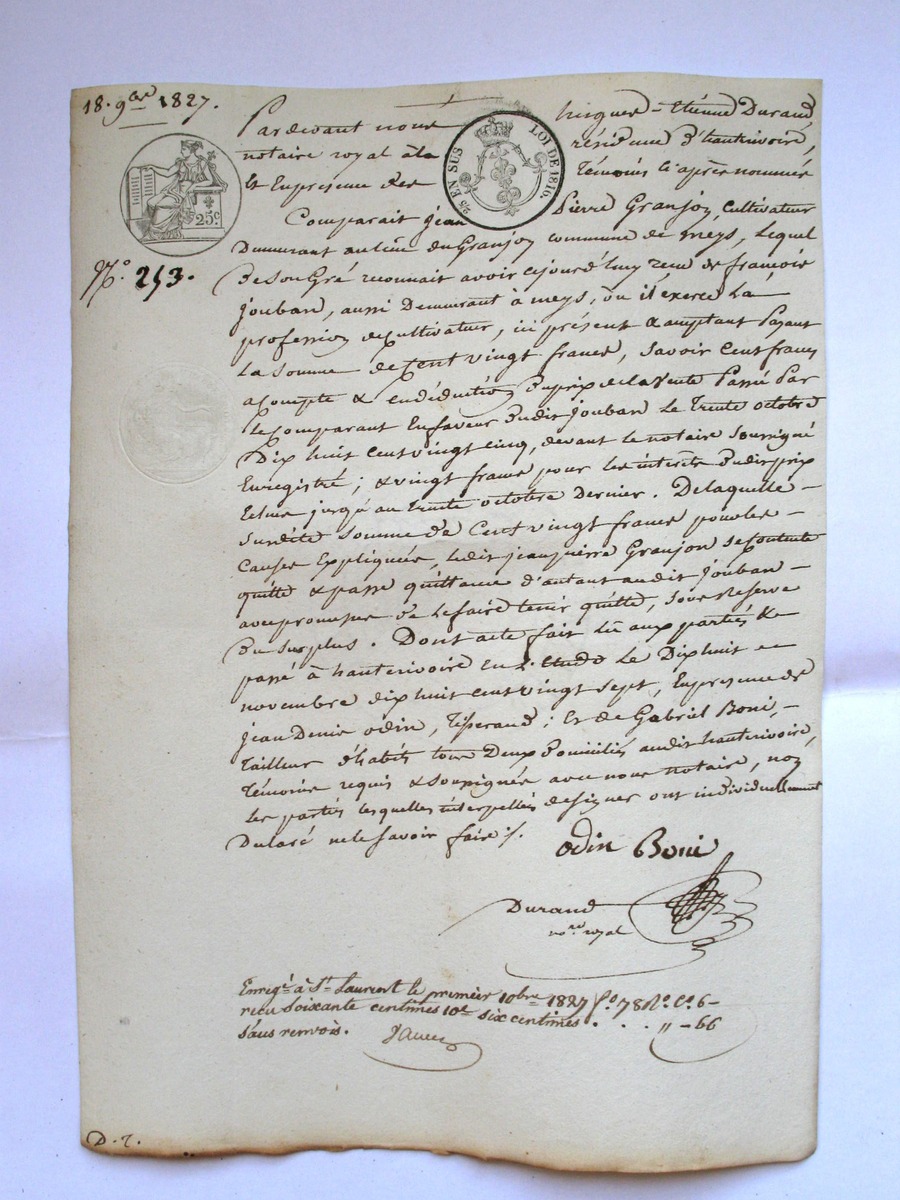 18. 9bre 1827.
Pardevant nous hugues-Etienne Durand
notaire royal à la résidence d'hauterivoire,
Et En présence des Témoins ci après nommés
2/5 EN SUS LOI DE 1816.
25c.
Comparait Jean Pierre Granjon, cultivateur
Demeurant au lieu du Granjon commune de meys, Lequel
N.° 253.
De Son Gré reconnait avoir cejourd'huy reçu de françois
Jouban, aussi Demeurant à meys, où il exerce La
profession de Cultivateur, ici présent & acceptant Payant
La somme de Cent vingt francs, savoir Cent francs
acompte & en déduction du prix de la vente Passée Par
Le Comparant En faveur dudit Jouban Le Trente octobre
Dix huit cent vingt cinq, devant le notaire Soussigné
Enregistré; & vingt francs pour les intérets dudit prix
Echus jusqu'au trente octobre Dernier. De laquelle -
Susdite Somme de Cent vingt francs pour les -
Causes Expliquées, ledit jean pierre Granjon se Contente
quitte & passe quittance d'autant audit Jouban -
avec promesse de le faire tenir quitte, sous Réserve
Du surplus. Dont acte fait lu aux parties &
passé à hauterivoire en l'étude Le Dix huit -
novembre dix huit cent vingt sept, En présence de
Jean Denis odin, Tisserand; Et de Gabriel Boni, -
Tailleur d'habits tous Deux Domiciliés audit hauterivoire,
Témoins requis & soussignés avec nous notaire, non
Les parties lesquelles interpellées de signer ont individuellement
Déclaré ne le savoir faire /.
odin Boni
Durand
no.re royal
Enregé à St Laurent le premier 10bre 1827 f.o 78 R.o C.o 6-
reçu soixante centimes 10e six centimes . . . " - 66
sans renvois.
D. r.